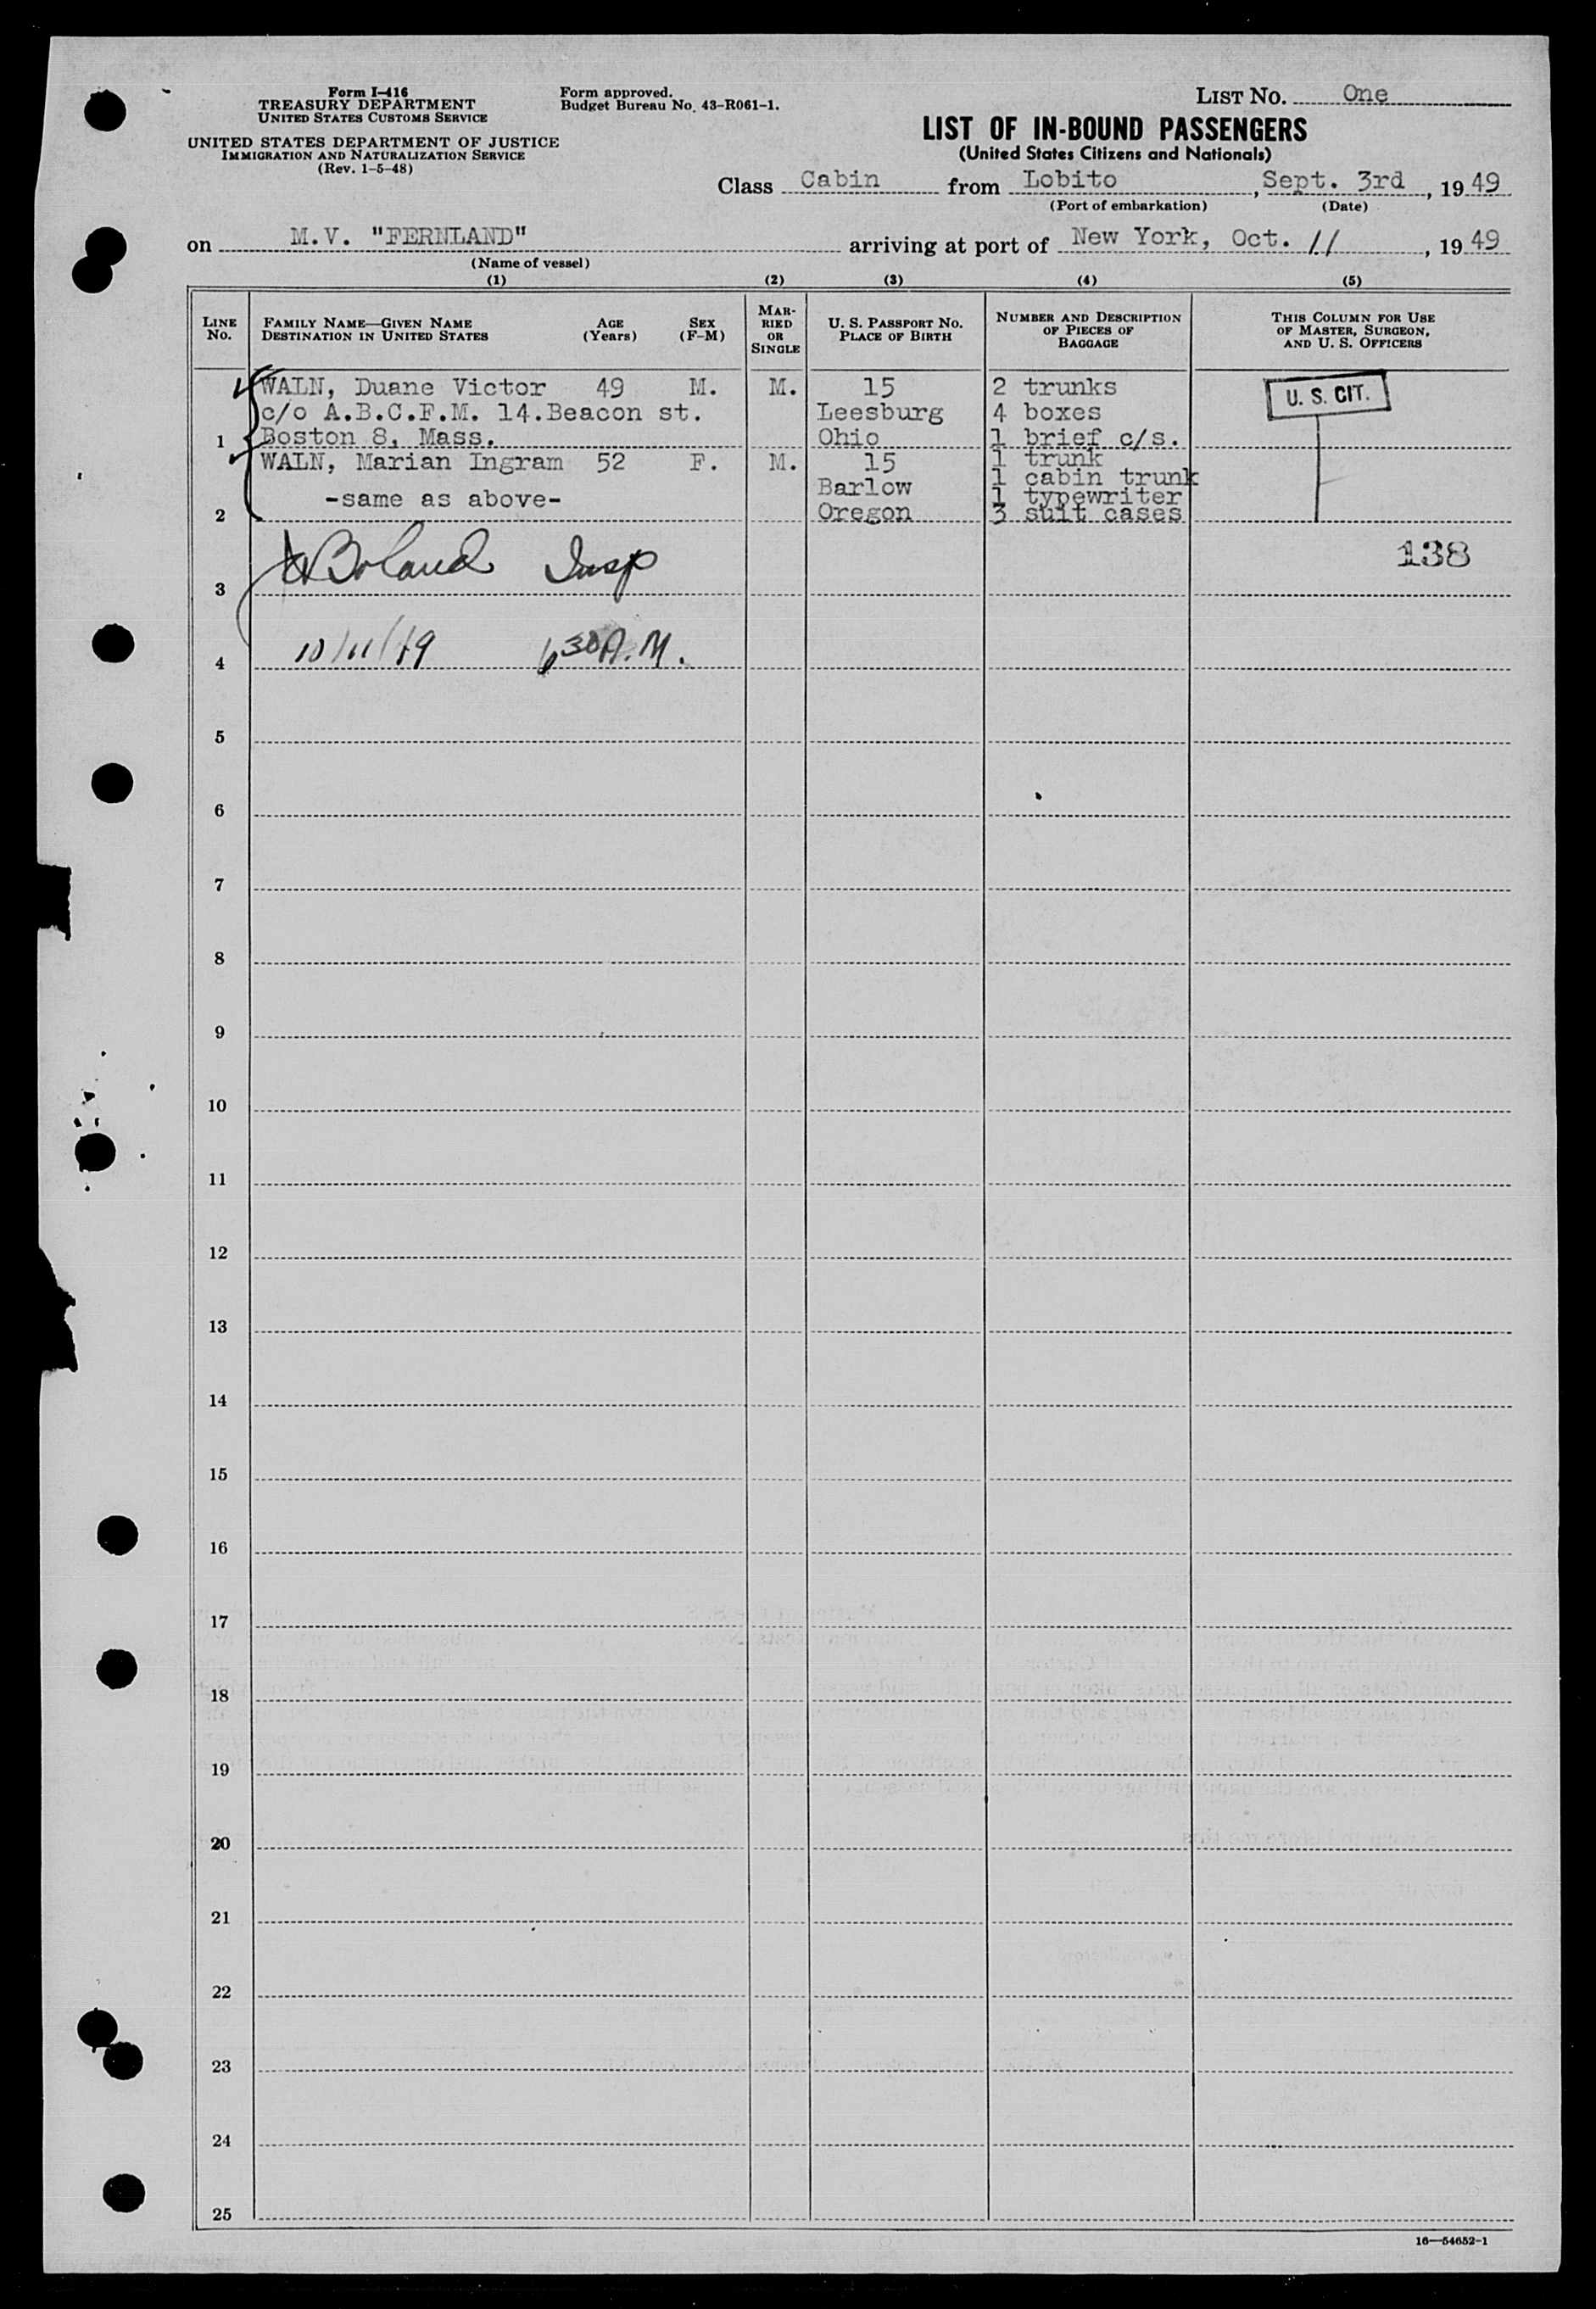 Form I-416
TREASURY DEPARTMENT
UNITED STATES CUSTOMS SERVICE
UNITED STATES DEPARTMENT OF JUSTICE
IMMIGRATION AND NATURALIZATION SERVICE
(Rev. 1-5-48)
Form approved.
Budget Bureau No. 43-R061-1.
LIST NO. One
LIST OF IN-BOUND PASSENGERS
(United States Citizens and Nationals)
Class Cabin from Lobito, Sept. 3rd, 1949
(Port of embarkation) (Date)
on M.V. "FERNLAND" arriving at port of New York, Oct. 11, 1949
(Name of vessel)
(1) (2) (3) (4) (5)
LINE NO.
FAMILY NAME—GIVEN NAME
DESTINATION IN UNITED STATES
AGE
(Years)
SEX
(F-M)
MAR-
RIED
OR
SINGLE
U. S. PASSPORT NO.
PLACE OF BIRTH
NUMBER AND DESCRIPTION
OF PIECES OF
BAGGAGE
THIS COLUMN FOR USE
OF MASTER, SURGEON,
AND U. S. OFFICERS
WALN, Duane Victor 49 M. M. 15 2 trunks U. S. CIT.
c/o A.B.C.F.M. 14.Beacon st. Leesburg 4 boxes
1 Boston 8, Mass. Ohio 1 brief c/s.
WALN, Marian Ingram 52 F. M. 15 1 trunk
1 cabin trunk
-same as above- Barlow 1 typewriter
2 Oregon 3 suit cases
Boland Insp 138
3
10/11/49 6 30 A.M.
4
5
6
7
8
9
10
11
12
13
14
15
16
17
18
19
20
21
22
23
24
25
16—54652-1